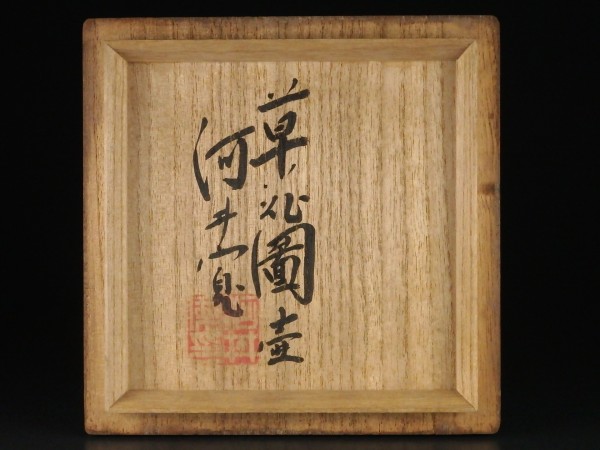 草花圖壺
河井寛